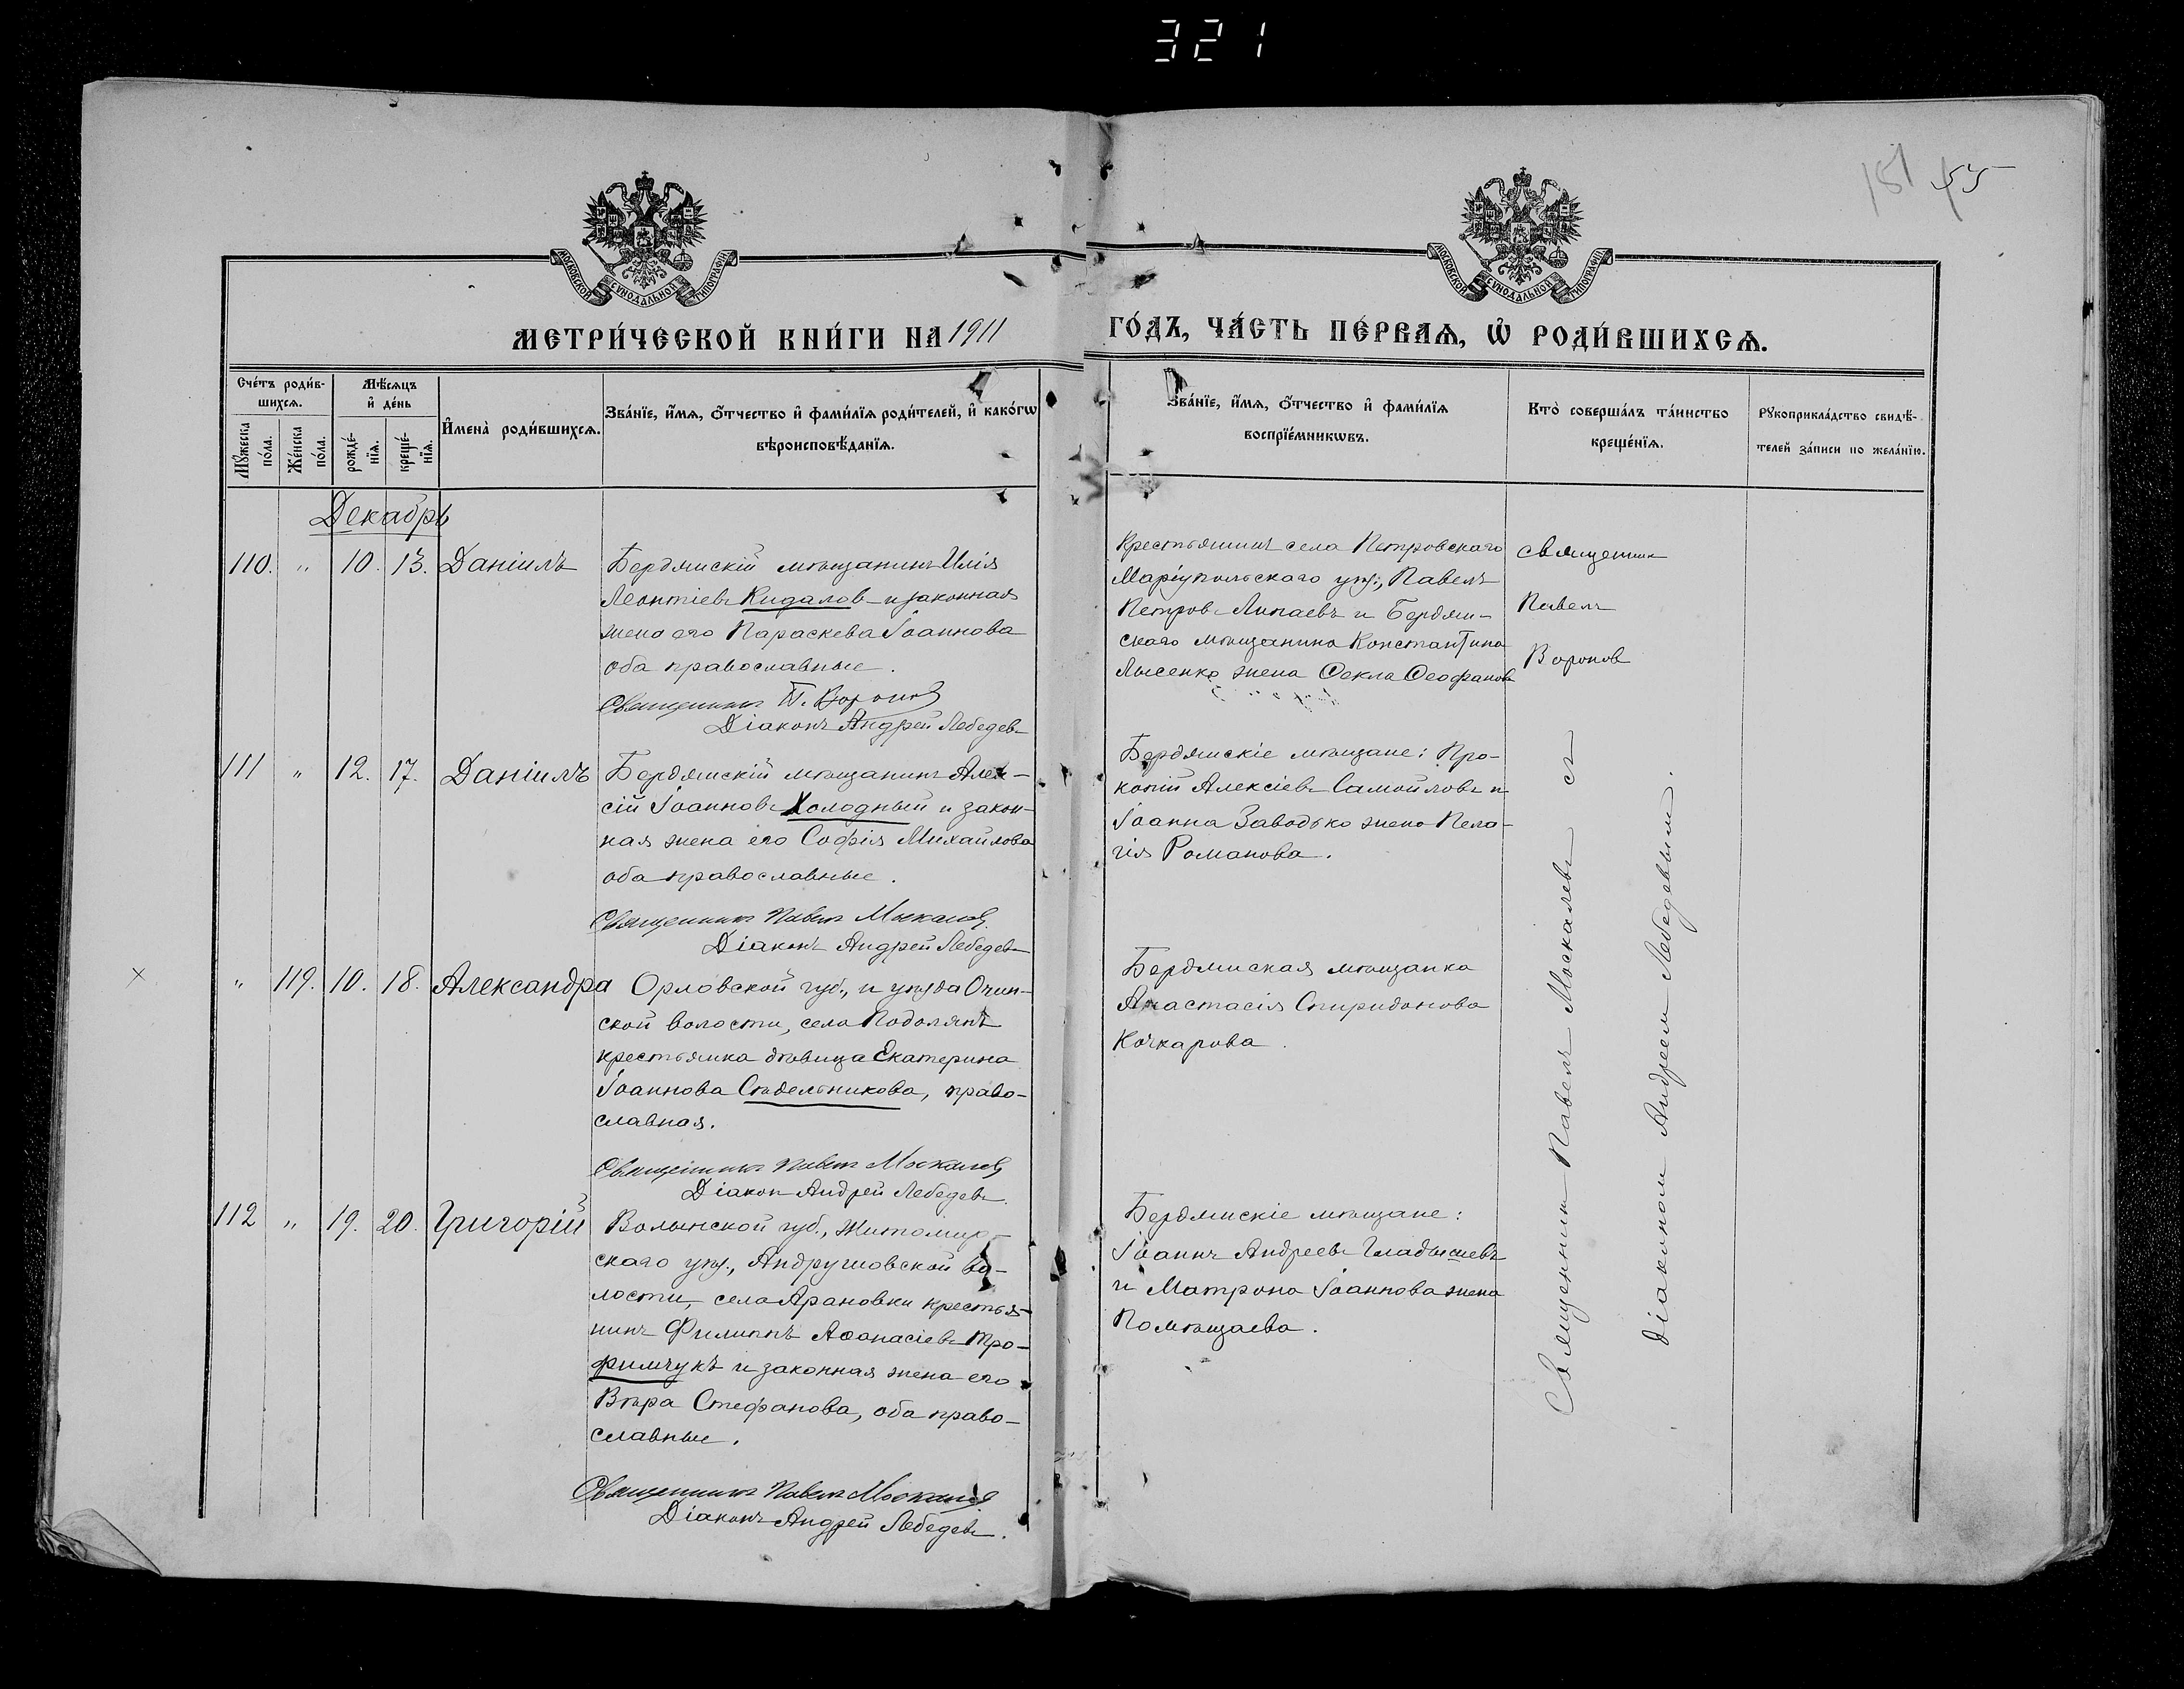 321
181 55
МОСКОВСКОЙ СѴНОДАЛЬНОЙ ТИПОГРАФІИ
МОСКОВСКОЙ СѴНОДАЛЬНОЙ ТИПОГРАФІИ
МЕТРИ́ЧЕСКОЙ КНИ́ГИ НА 1911
ГО́ДЪ, ЧА́СТЬ ПЕ́РВАѦ, Ѡ҆ РОДИ́ВШИХСѦ.
Сче́тъ роди́в-
шихсѧ.
Мꙋ́жеска
по́ла.
Же́нска
по́ла.
Мѣ́сѧцъ
и҆ де́нь
рожде́-
нїѧ.
креще́-
нїѧ.
И҆мена̀ роди́вшихсѧ.
Зва́нїе, и҆́мѧ, ѻ҆́тчество и҆ фами́лїѧ роди́телей, и҆ како́гѡ
вѣроисповѣ́данїѧ.
Зва́нїе, и҆́мѧ, ѻ҆́тчество и҆ фами́лїѧ
воспрїе́мникѡвъ.
Кто̀ соверша́лъ та́инство
креще́нїѧ.
Рꙋкоприкла́дство свидѣ́-
телей за́писи по жела́нїю.
Декабрь
110. " 10. 13. Даніилъ
Бердянскій мѣщанинъ Илія
Леонтіевъ Кидаловъ и законная
жена его Параскева Іоаннова
оба православные.
Священникъ П. Вороновъ
Діаконъ Андрей Лебедевъ
Крестьянинъ села Петровскаго
Маріупольскаго уѣз., Павелъ
Петровъ Липаевъ и Бердян-
скаго мѣщанина Константина
Лысенко жена Ѳекла Ѳеофанова
священникъ
Павелъ
Вороновъ
111 " 12. 17. Даніилъ
Бердянскій мѣщанинъ Алек-
сій Іоанновъ Холодный и закон-
ная жена его Софія Михайлова
оба православные.
Священникъ Павелъ Москалевъ
Діаконъ Андрей Лебедевъ
Бердянскіе мѣщане: Про-
копій Алексіевъ Самойловъ и
Іоанна Заводько жена Пела-
гія Романова.
× " 119. 10. 18. Александра
Орловской губ., и уѣзда Очин-
ской волости, села Подолянъ
крестьянка дѣвица Екатерина
Іоаннова Сѣдельникова, право-
славная.
Священникъ Павелъ Москалевъ
Діаконъ Андрей Лебедевъ.
Бердянская мѣщанка
Анастасія Спиридонова
Кочкарова.
112 " 19. 20. Григорій
Волынской губ., Житомир-
скаго уѣз., Андрушовской во-
лости, села Арановки крестья-
нинъ Филиппъ Аѳанасіевъ Тро-
фимчукъ и законная жена его
Вѣра Стефанова, оба право-
славные.
Священникъ Павелъ Москалевъ
Діаконъ Андрей Лебедевъ.
Бердянскіе мѣщане:
Іоаннъ Андреевъ Гладышевъ
и Матрона Іоаннова жена
Помѣщаева.
Священникъ Павелъ Москалевъ съ
діакономъ Андреемъ Лебедевымъ.